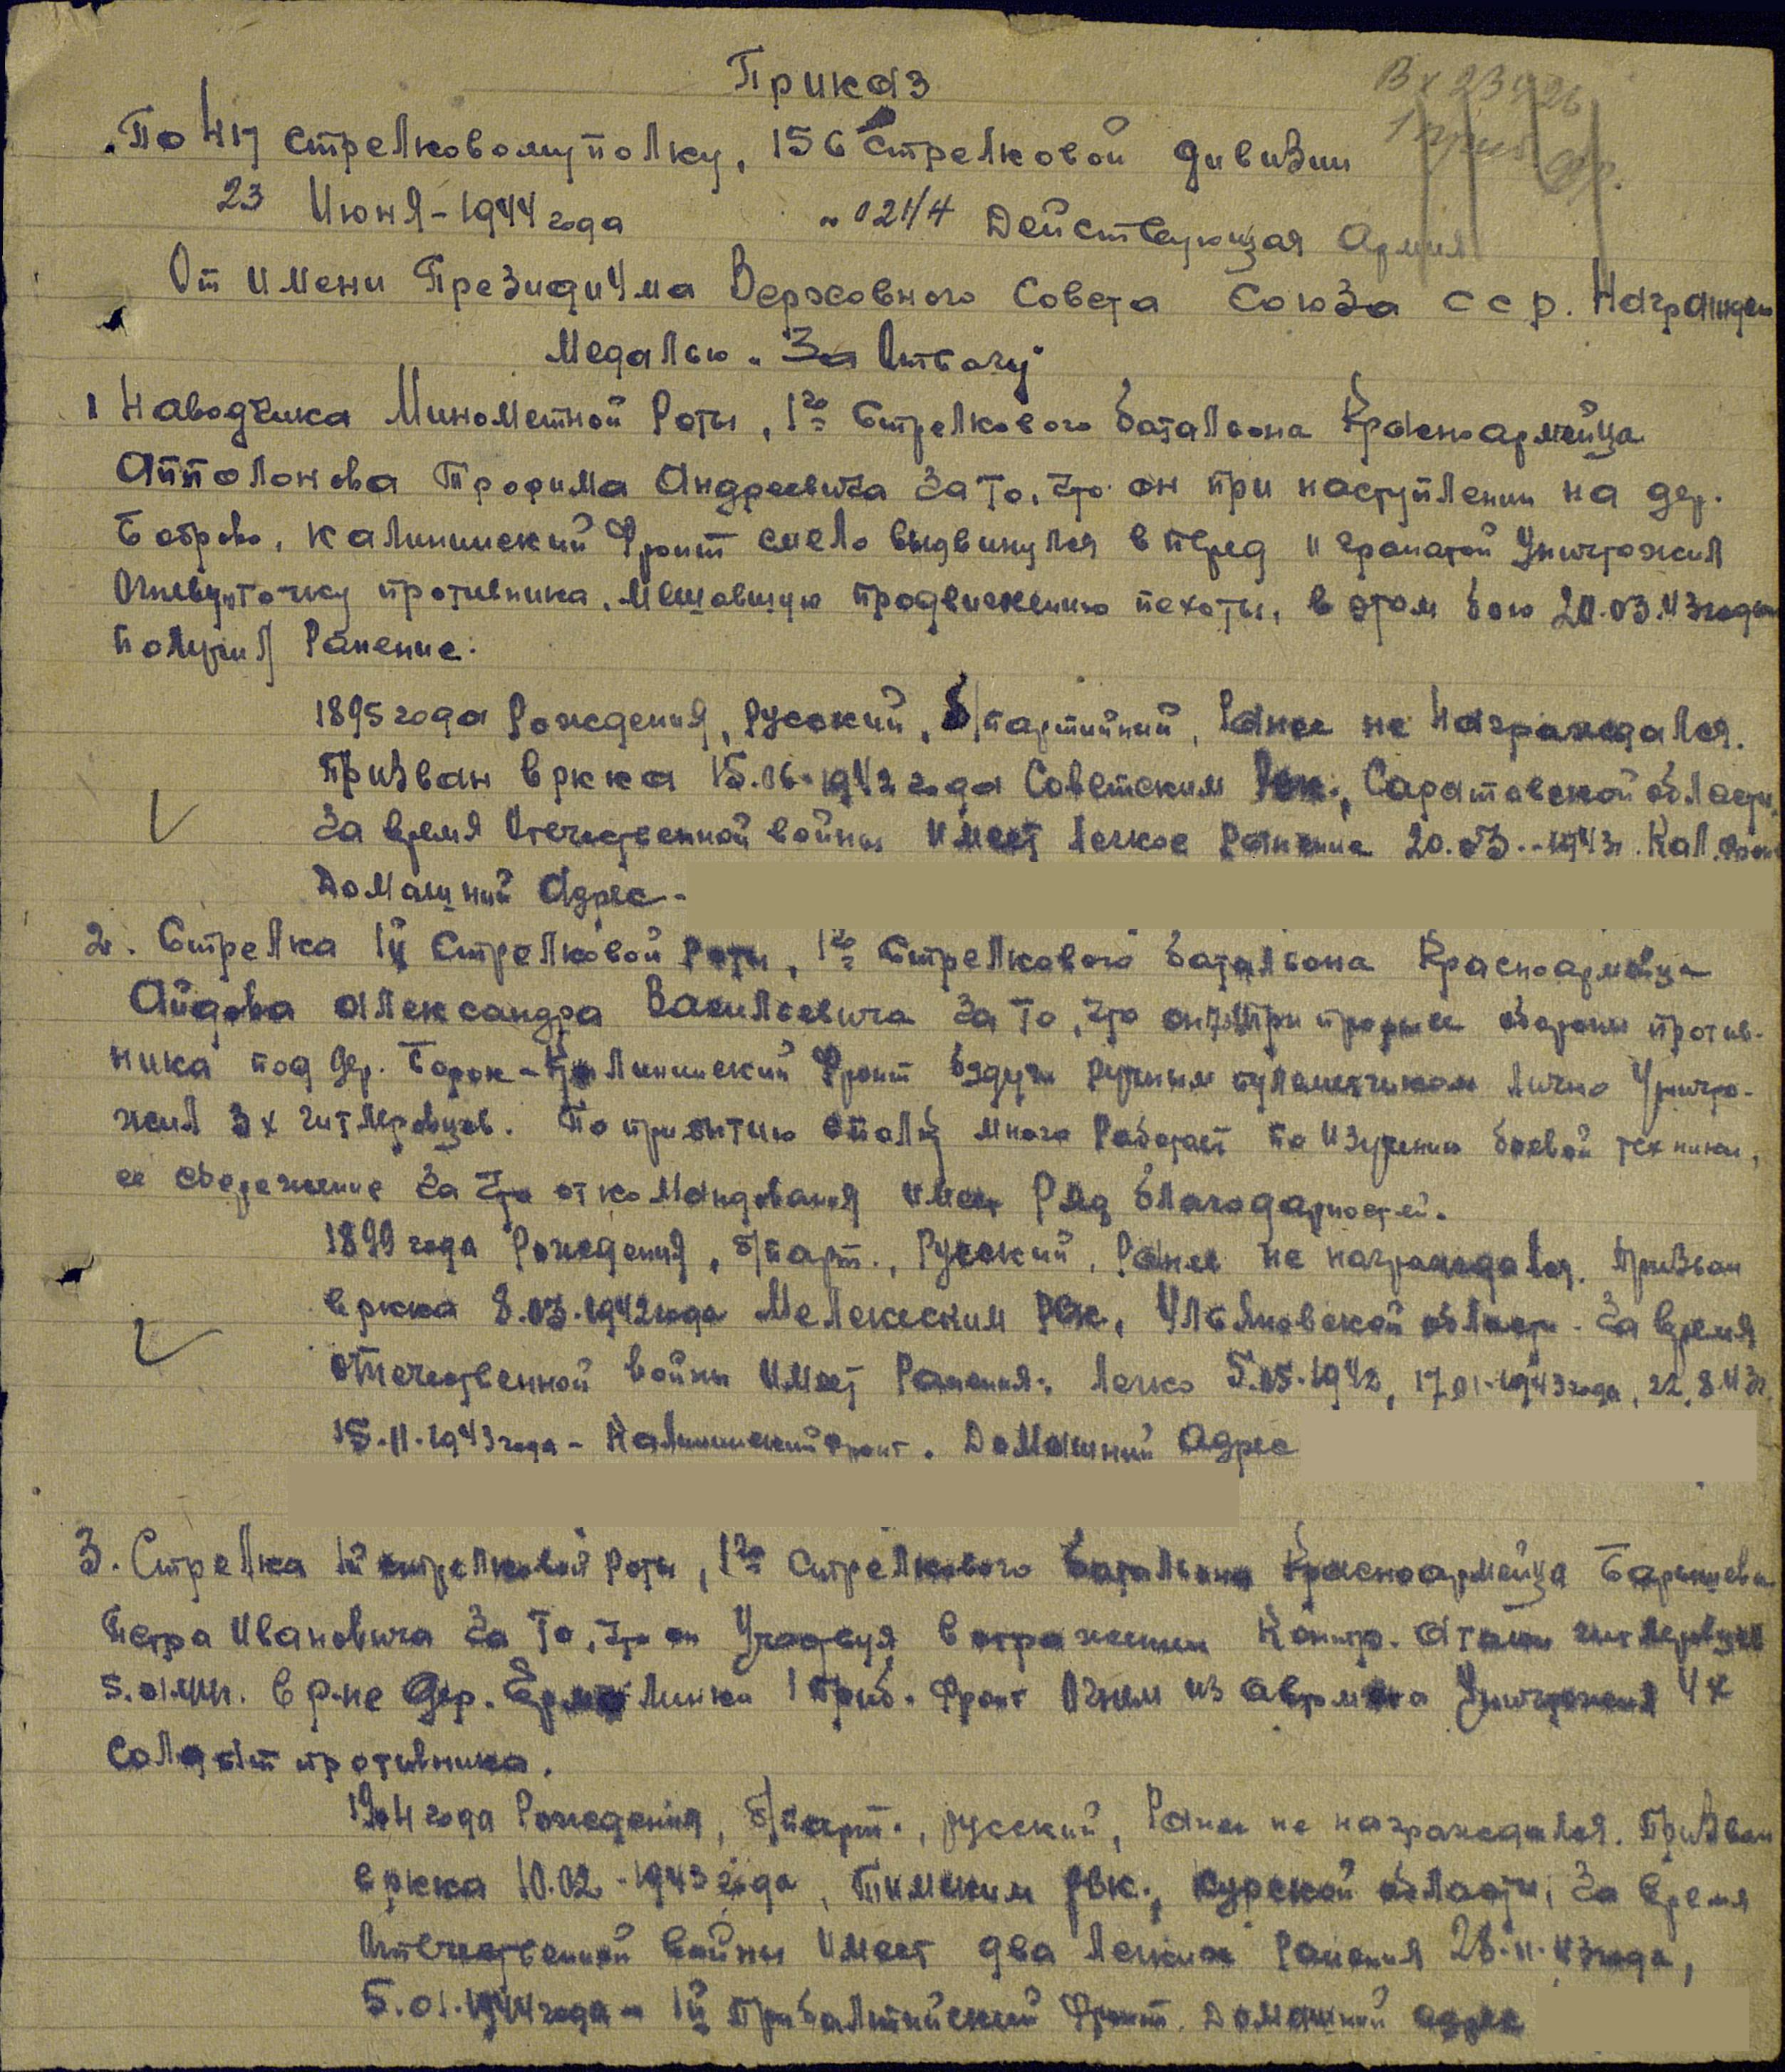 Приказ
По 417 стрелковому полку, 156 Стрелковой дивизии
23 Июня-1944 года "021/4 Действующая Армия
Вх 23
1 приб
От имени Президиума Верховного Совета Союза ССР. Награждаю
Медалью "За Отвагу"
1 Наводчика Минометной Роты, 1го Стрелкового батальона Красноармейца
Апполонова Трофима Андреевича За то, что он при наступлении на дер.
Калининский Фронт смело выдвинулся вперед и гранатой Уничтожил
Огневую точку противника, мешавшую продвижению пехоты, в этом бою 20.03.43 года
получил Ранение.
1895 года Рождения, Русский, б/партийный, Ранее не Награждался.
Призван в ркка 15.06.1942 года Советским Рвк., Саратовской области.
За время Отечественной войны имеет легкое Ранение 20.03.-1943г. Кал. фронт
Домашний Адрес-
2. Стрелка 1й Стрелковой Роты, 1го Стрелкового баталиона Красноармейца
Айдова Александра Васильевича За то, что он при прорыве обороны против-
ника под дер. Борок-Калининский Фронт будучи ручным пулеметчиком лично Уничто-
жил 3х гитлеровцев. По прибытию в полк много Работает по изучению боевой техники,
ее сбережение За что от командования имеет Ряд благодарностей.
1899 года Рождения, б/парт., Русский, Ранее не награждался. Призван
в ркка 8.03.1942 года Мелекеским РВК, Ульяновской области. За время
отечественной войны имеет Ранения: легко 5.05.1942, 17.01.1943 года, 22.8.43г.
15.11.1943 года - Калининский фронт. Домашний Адрес
3. Стрелка 1й стрелковой роты, 1го Стрелкового баталиона Красноармейца
Петра Ивановича За то, что он Участвуя в отражении Контр. атаки гитлеровцев
5.01.44г. в р-не дер. Ермолинки 1 Приб. Фронт Огнем из автомата Уничтожил 4х
солдат противника.
1904 года Рождения, б/парт., русский, Ранее не награждался. Призван
в ркка 10.02.-1943 года, Тимским рвк., Курской области, За время
Отечественной войны имеет два легких ранения 28.11.43 года,
5.01.1944 года - 1й Прибалтийский Фронт. Домашний адрес